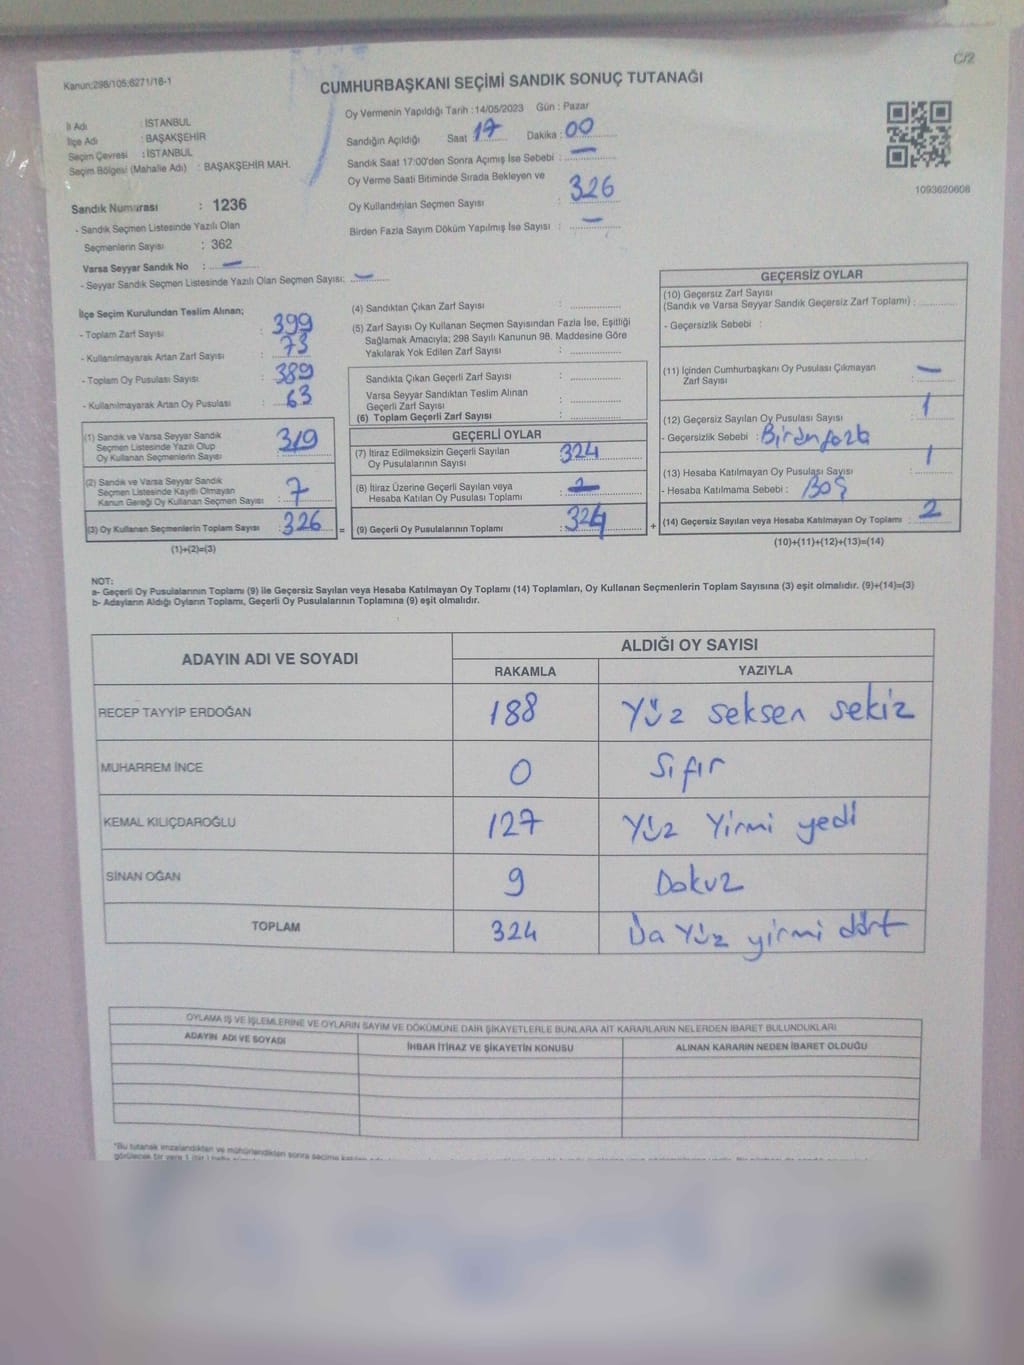 C/2
Kanun:298/105;6271/18-1
CUMHURBAŞKANI SEÇİMİ SANDIK SONUÇ TUTANAĞI
İl Adı : İSTANBUL
İlçe Adı : BAŞAKŞEHİR
Seçim Çevresi : İSTANBUL
Seçim Bölgesi (Mahalle Adı) : BAŞAKŞEHİR MAH.
Sandık Numarası : 1236
- Sandık Seçmen Listesinde Yazılı Olan
Seçmenlerin Sayısı : 362
Varsa Seyyar Sandık No : —
- Seyyar Sandık Seçmen Listesinde Yazılı Olan Seçmen Sayısı: —
Oy Vermenin Yapıldığı Tarih : 14/05/2023 Gün : Pazar
Sandığın Açıldığı Saat 17 Dakika : 00
Sandık Saat 17:00'den Sonra Açımış İse Sebebi : —
Oy Verme Saati Bitiminde Sırada Bekleyen ve
Oy Kullandırılan Seçmen Sayısı : 326
Birden Fazla Sayım Döküm Yapılmış İse Sayısı : —
1093620608
İlçe Seçim Kurulundan Teslim Alınan;
- Toplam Zarf Sayısı : 399
- Kullanılmayarak Artan Zarf Sayısı : 73
- Toplam Oy Pusulası Sayısı : 389
- Kullanılmayarak Artan Oy Pusulası : 63
(1) Sandık ve Varsa Seyyar Sandık
Seçmen Listesinde Yazılı Olup
Oy Kullanan Seçmenlerin Sayısı : 319
(2) Sandık ve Varsa Seyyar Sandık
Seçmen Listesinde Kayıtlı Olmayan
Kanun Gereği Oy Kullanan Seçmen Sayısı : 7
(3) Oy Kullanan Seçmenlerin Toplam Sayısı : 326
(1)+(2)=(3)
=
(4) Sandıktan Çıkan Zarf Sayısı :
(5) Zarf Sayısı Oy Kullanan Seçmen Sayısından Fazla İse, Eşitliği
Sağlamak Amacıyla; 298 Sayılı Kanunun 98. Maddesine Göre
Yakılarak Yok Edilen Zarf Sayısı :
Sandıkta Çıkan Geçerli Zarf Sayısı :
Varsa Seyyar Sandıktan Teslim Alınan
Geçerli Zarf Sayısı :
(6) Toplam Geçerli Zarf Sayısı :
GEÇERLİ OYLAR
(7) İtiraz Edilmeksizin Geçerli Sayılan
Oy Pusulalarının Sayısı : 324
(8) İtiraz Üzerine Geçerli Sayılan veya
Hesaba Katılan Oy Pusulası Toplamı :
(9) Geçerli Oy Pusulalarının Toplamı : 324
+
GEÇERSİZ OYLAR
(10) Geçersiz Zarf Sayısı
(Sandık ve Varsa Seyyar Sandık Geçersiz Zarf Toplamı) :
- Geçersizlik Sebebi :
(11) İçinden Cumhurbaşkanı Oy Pusulası Çıkmayan
Zarf Sayısı : —
(12) Geçersiz Sayılan Oy Pusulası Sayısı : 1
- Geçersizlik Sebebi :
(13) Hesaba Katılmayan Oy Pusulası Sayısı : 1
- Hesaba Katılmama Sebebi : Boş
(14) Geçersiz Sayılan veya Hesaba Katılmayan Oy Toplamı : 2
(10)+(11)+(12)+(13)=(14)
NOT:
a- Geçerli Oy Pusulalarının Toplamı (9) ile Geçersiz Sayılan veya Hesaba Katılmayan Oy Toplamı (14) Toplamları, Oy Kullanan Seçmenlerin Toplam Sayısına (3) eşit olmalıdır. (9)+(14)=(3)
b- Adayların Aldığı Oyların Toplamı, Geçerli Oy Pusulalarının Toplamına (9) eşit olmalıdır.
ADAYIN ADI VE SOYADI ALDIĞI OY SAYISI
RAKAMLA YAZIYLA
RECEP TAYYİP ERDOĞAN 188 Yüz seksen sekiz
MUHARREM İNCE 0 Sıfır
KEMAL KILIÇDAROĞLU 127 Yüz Yirmi yedi
SİNAN OĞAN 9 Dokuz
TOPLAM 324 Yüz yirmi dört
OYLAMA İŞ VE İŞLEMLERİNE VE OYLARIN SAYIM VE DÖKÜMÜNE DAİR ŞİKAYETLERLE BUNLARA AİT KARARLARIN NELERDEN İBARET BULUNDUKLARI
ADAYIN ADI VE SOYADI İHBAR İTİRAZ VE ŞİKAYETİN KONUSU ALINAN KARARIN NEDEN İBARET OLDUĞU
*Bu tutanak imzalandıktan ve mühürlendikten sonra